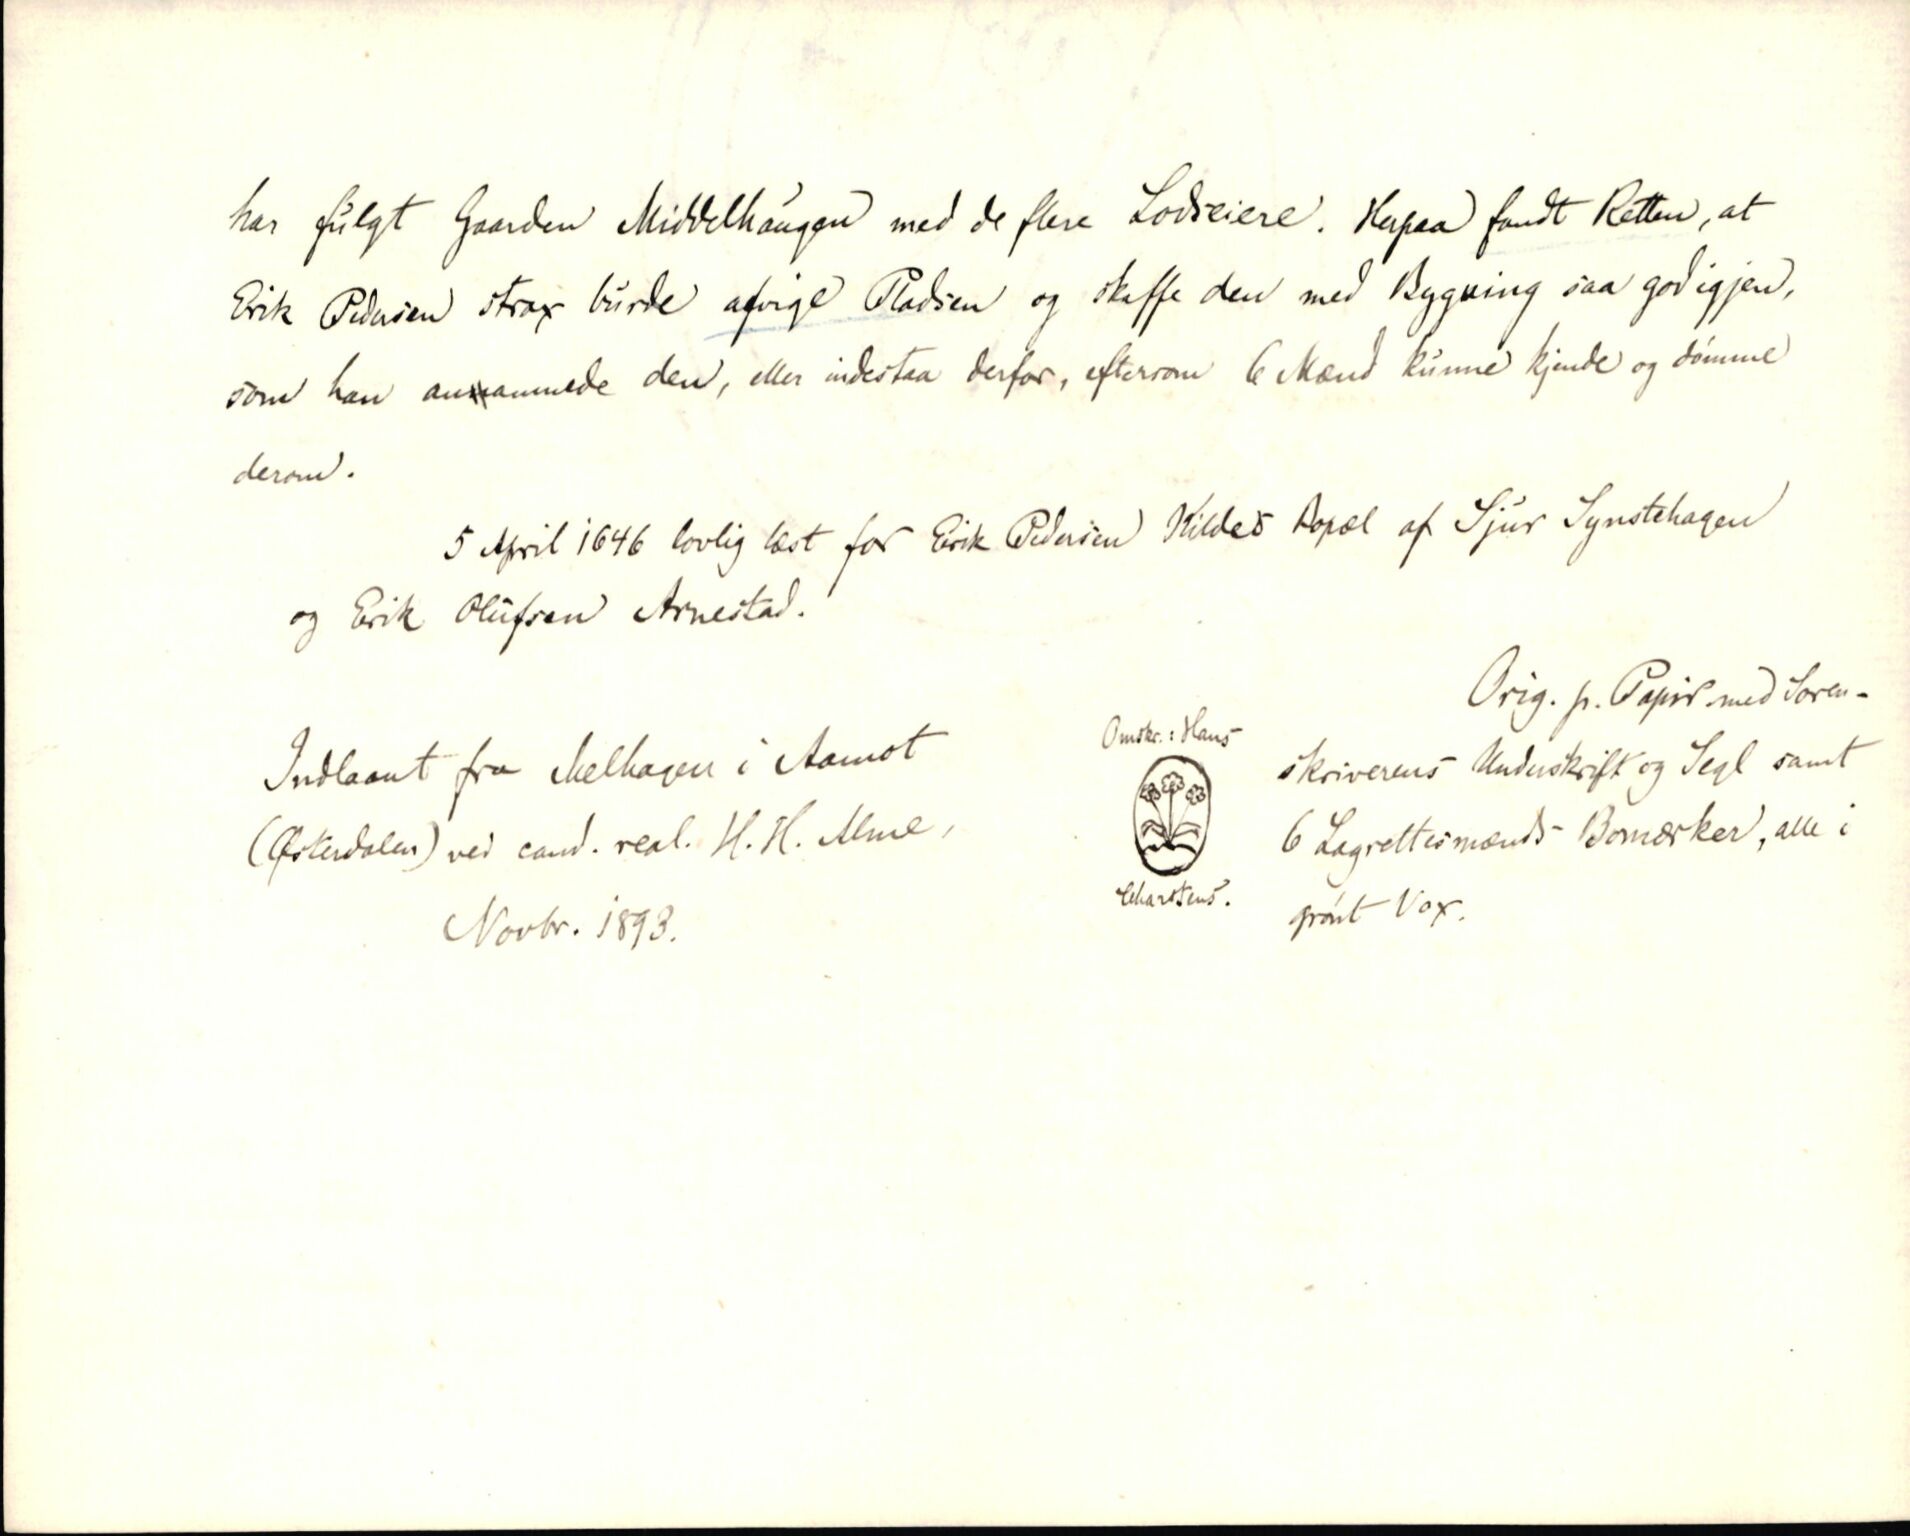 har fulgt Gaarden Middelhaugen med de flere Lodseiere. Herpaa fandt Retten, at
Erik Pedersen strax burde afvige Pladsen og skaffe den med Bygning saa god igjen,
som han anammede den, eller indestaa derfor, eftersom 6 Mænd kunne kjende og dømme
derom.
5 April 1646 lovlig læst for Erik Pedersen Kildes Bopæl af Sjur Synstehagen
og Erik Olufsen Arnestad.
Orig. p. Papir med Soren-
skriverens Underskrift og Segl samt
6 Lagrettesmænds Bomærker, alle i
grønt Vox.
Omskr.: Hans
Charstens.
Indlaant fra Melhagen i Aamot
(Østerdalen) ved cand. real. H. H. Alme,
Novbr. 1893.